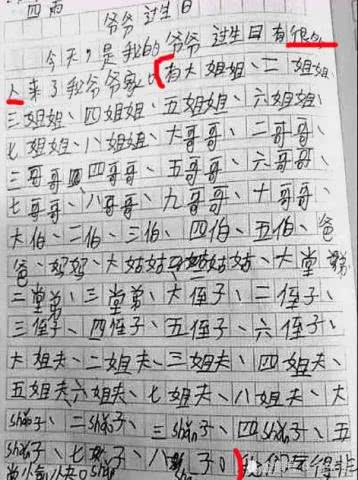 四雨
爷爷过生日
今天,是我的爷爷过生日有很多
人来了我爷爷家,有大姐姐、二姐姐、
三姐姐、四姐姐、五姐姐、六姐姐、
七姐姐、八姐姐、大哥哥、二哥哥、
三哥哥四哥哥、五哥哥、六哥哥、
七哥哥、八哥哥、九哥哥、十哥哥、
大伯、二伯、三伯、四伯、五伯、爸
爸、妈妈、大姑姑姑姑、大堂弟、
二堂弟、三堂弟、大侄子、二侄子、
三侄子、四侄子、五侄子、六侄子、
大姐夫、二姐夫、三姐夫、四姐夫、
五姐夫六姐夫、七姐夫、八姐夫、大
子、二子、三子、四子、五
子、七子、八子。我们玩得非